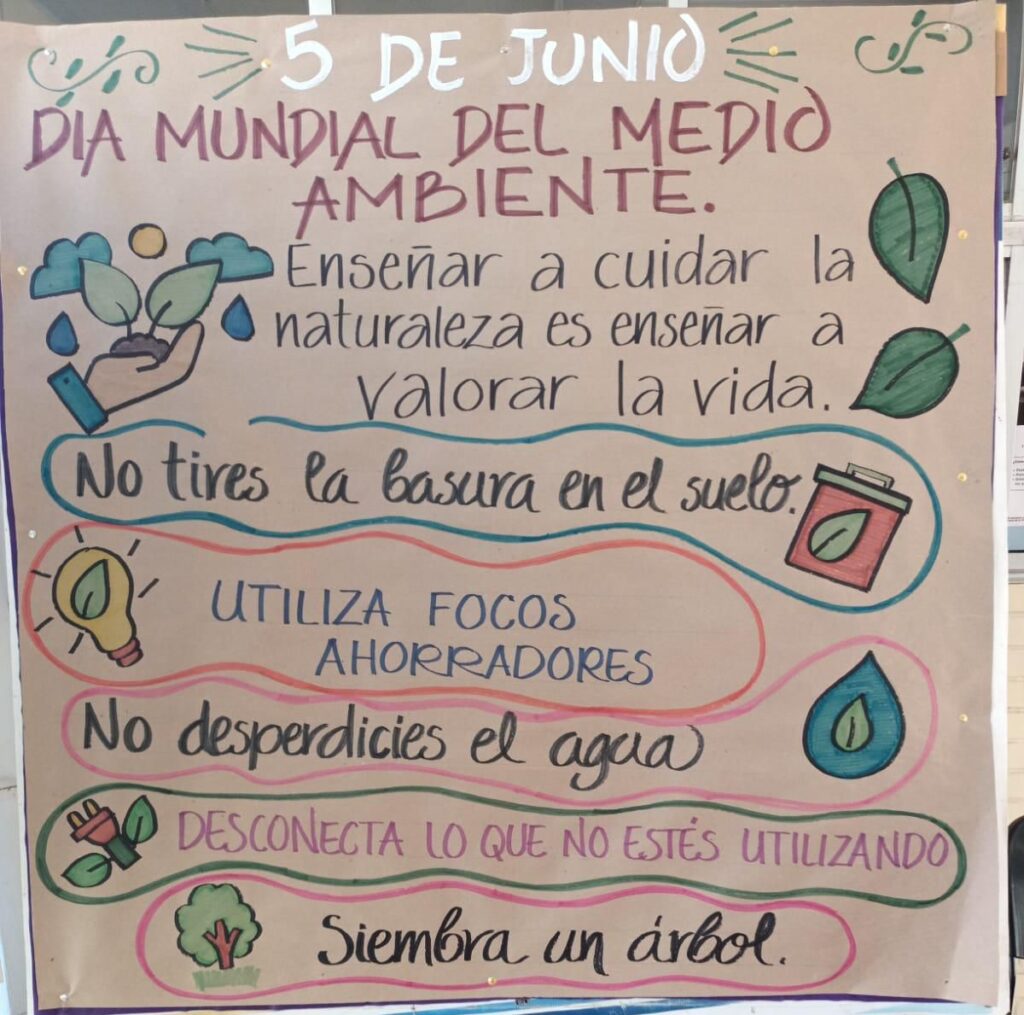 5 DE JUNIO
DIA MUNDIAL DEL MEDIO
AMBIENTE.
Enseñar a cuidar la
naturaleza es enseñar a
valorar la vida.
No tires la basura en el suelo.
UTILIZA FOCOS
AHORRADORES
No desperdicies el agua
DESCONECTA LO QUE NO ESTÉS UTILIZANDO
Siembra un árbol.